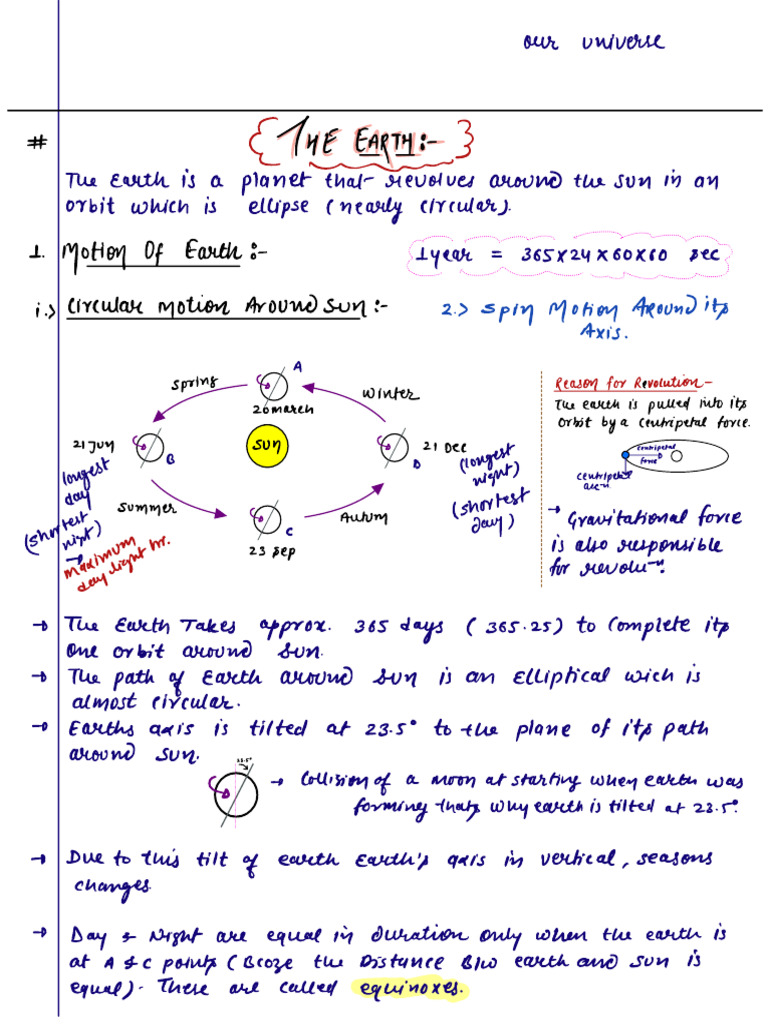 our universe
# THE EARTH:-
The Earth is a planet that revolves around the sun in an
orbit which is ellipse (nearly circular).
1. Motion Of Earth:-
1year = 365x24x60x60 sec
i.) Circular motion Around Sun:-
2.) Spin Motion Around its
Axis.
A
Spring
Winter
20 march
21 Jun
B
SUN
21 Dec
D
longest
day
(shortest
night)
(longest
night)
(shortest
day)
Summer
Autum
C
23 sep
→ maximum
day light hr.
Reason for Revolution-
The earth is pulled into its
orbit by a centripetal force.
centripetal
force
centripetal
→ Gravitational force
is also responsible
for
→ The Earth Takes approx. 365 days (365.25) to complete its
one orbit around sun.
→ The path of Earth around sun is an elliptical wich is
almost circular.
→ Earths axis is tilted at 23.5° to the plane of its path
around sun.
23.5°
→ Collision of a moon at starting when earth was
forming thats why earth is tilted at 23.5°
→ Due to this tilt of earth Earth's axis in vertical, seasons
changes
→ Day & Night are equal in duration only when the earth is
at A & C points (Bcoze the Distance B/w earth and sun is
equal). These are called equinoxes.